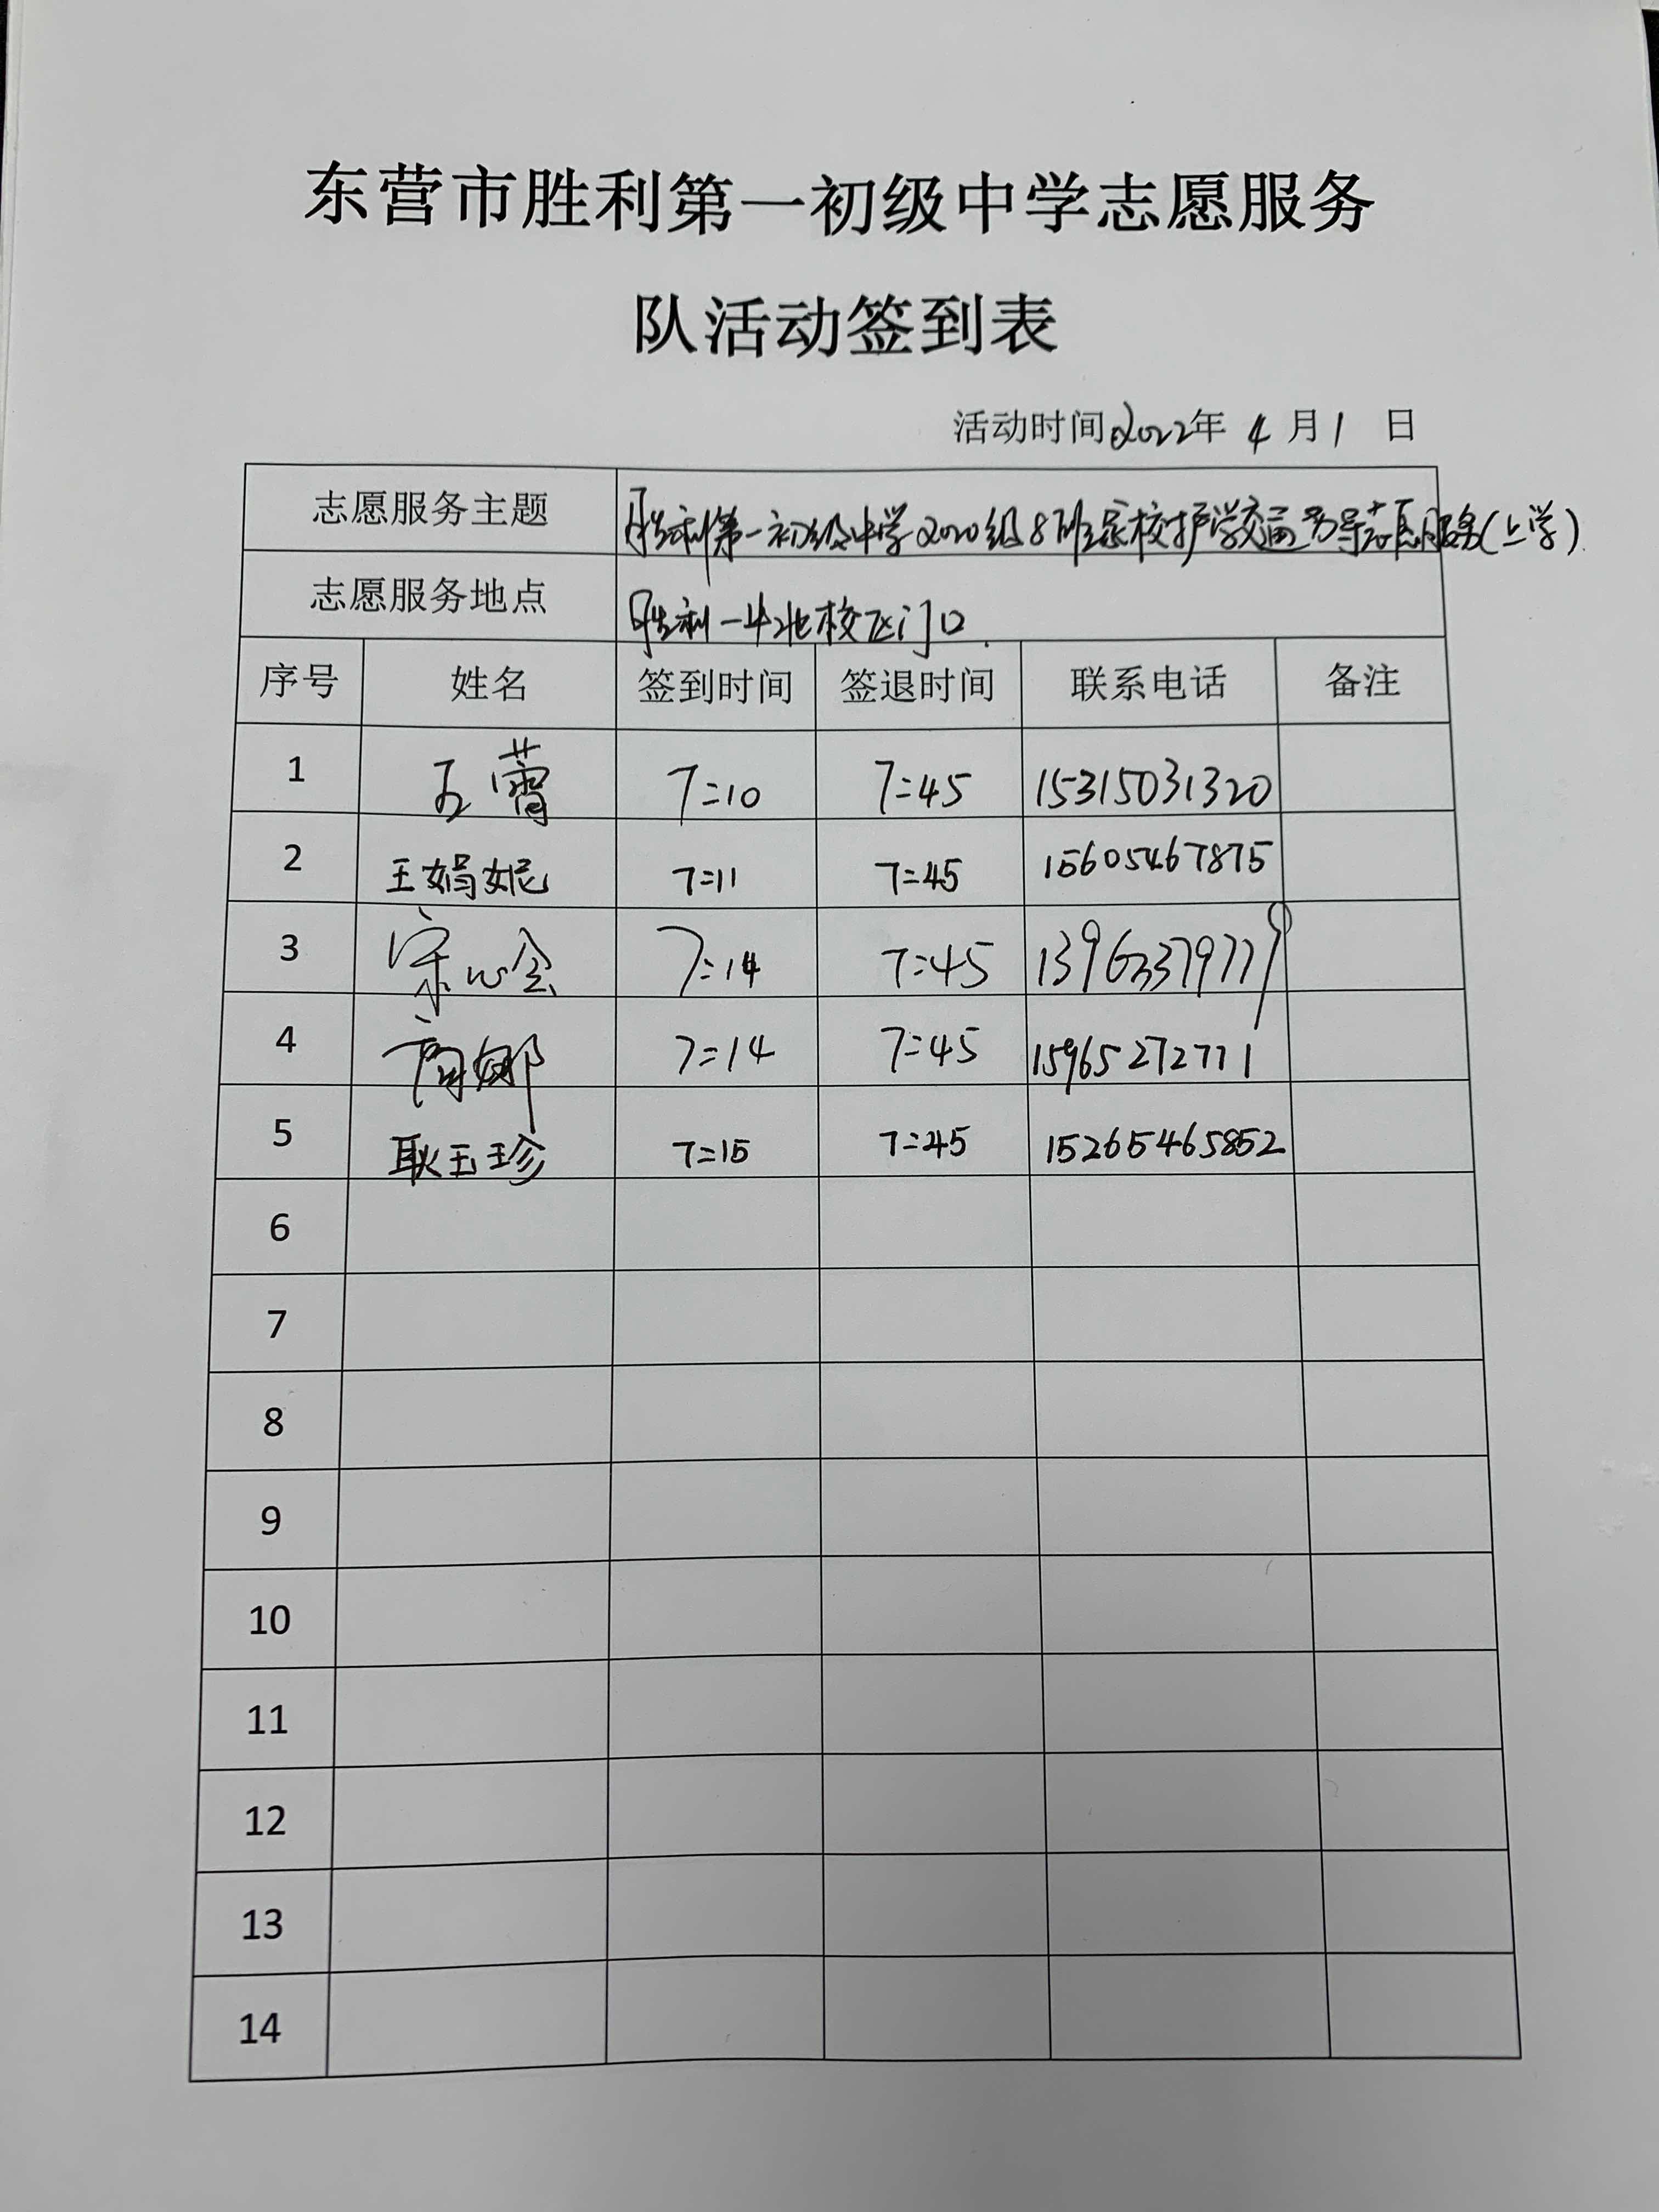 东营市胜利第一初级中学志愿服务
队活动签到表
活动时间2022年 4 月 1 日
志愿服务主题 胜利第一初级中学2020级8班家校护学交通劝导志愿服务(上学).
志愿服务地点 胜利一中北校区门口.
序号 姓名 签到时间 签退时间 联系电话 备注
1 王蕾 7:10 7:45 15315031320
2 王娟妮 7:11 7:45 15605467875
3 宋心会 7:14 7:45 13963379779
4 7:14 7:45 15965272771
5 耿玉珍 7:15 7:45 15265465852
6
7
8
9
10
11
12
13
14